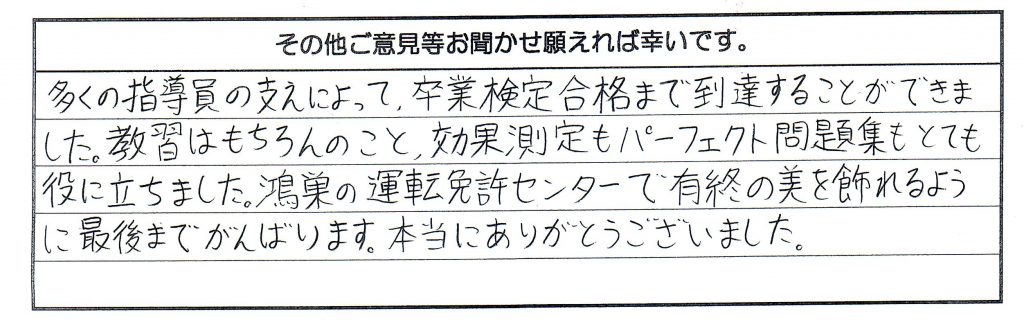 その他ご意見等お聞かせ願えれば幸いです。
多くの指導員の支えによって,卒業検定合格まで到達することができま
した。教習はもちろんのこと,効果測定もパーフェクト問題集もとても
役に立ちました。鴻巣の運転免許センターで有終の美を飾れるよう
に最後までがんばります。本当にありがとうございました。